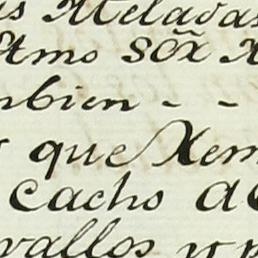 s Meladas
Ptmo SOx̃ X
mbien - -
que Xem
cacho de
vallos y p